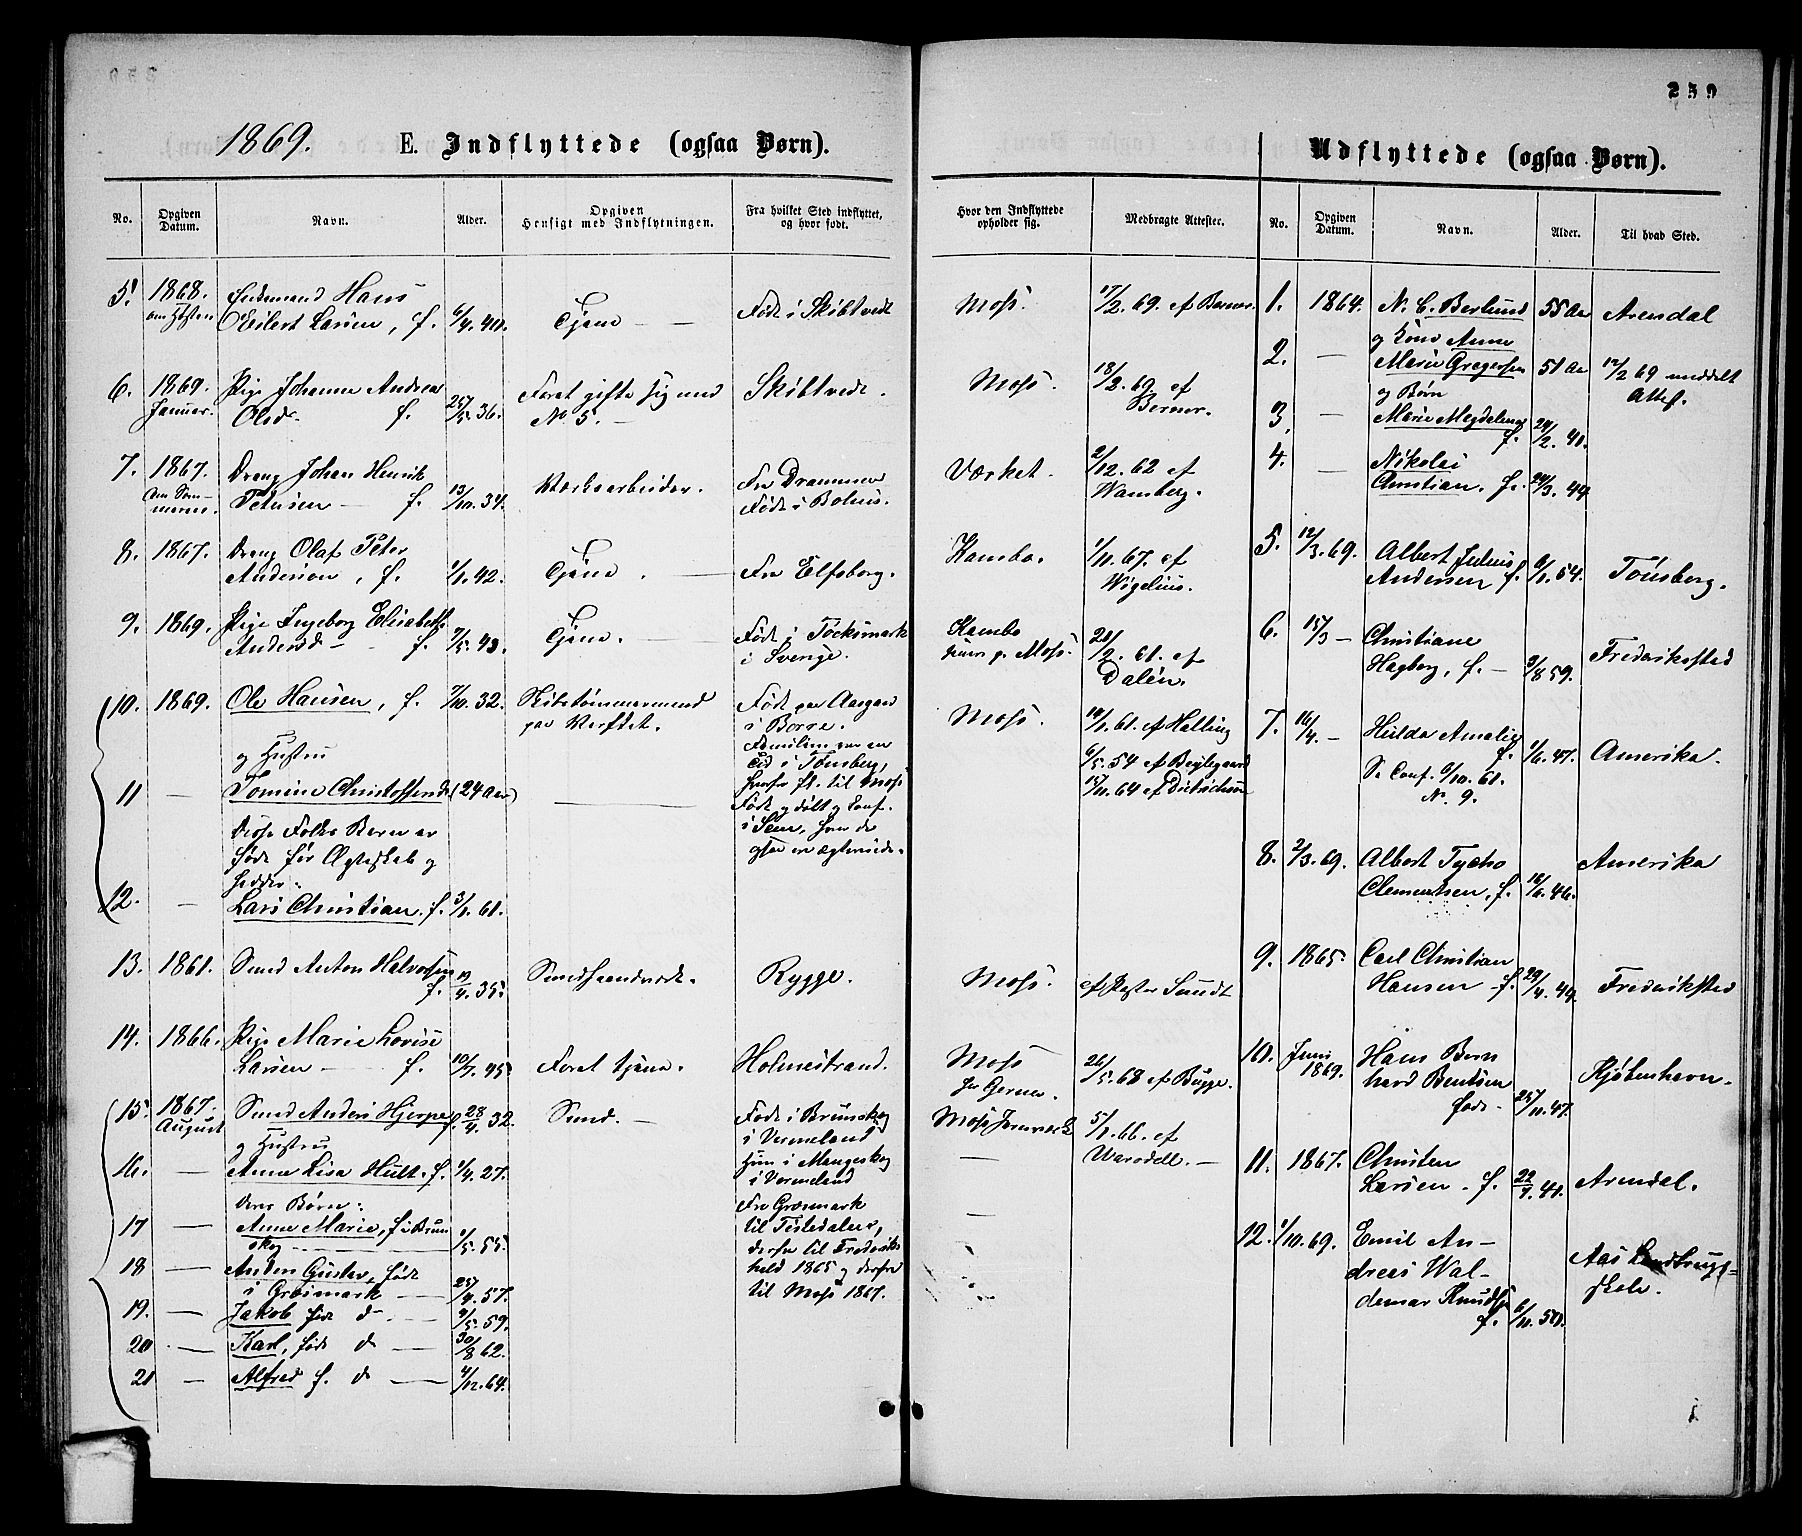 259
1869. E. Indflyttede (ogsaa Børn).
No. Opgiven Datum. Navn. Alder. Opgiven Hensigt med Indflytningen. Fra hvilket Sted indflyttet, og hvor født. Hvor den Indflyttede opholder sig. Medbragte Attester.
5. 1868. om Høsten Hans Eilert Larsen, f. 6/4. 40. Tjene — Født i Skibtvedt Moss. 17/2. 69. af Berner.
6. 1869. Januar. Pige Johanne Andrea Olsd. f. 25/5. 36. Foret gifte sig med No 5. — Skibtvedt. Moss. 18/2. 69. af Berner.
7. 1867. om Sommeren. Dreng Johan Henrik Petersen — f. 13/10. 34. Værksarbeider. Fra Drammen Født i Bohus. Værket. 2/12. 62 af Wamberg.
8. 1867. Dreng Olaf Peter Anderson, f. 1/1. 42. Tjene. — Fra Elfsborg. Kambo. 1/11. 67. af Wigelius.
9. 1869. Pige Ingeborg Elisabeth Andersd. — f. 7/5. 43. Tjene. — Født i Töcksmark i Sverige. Kambo senere p. Moss. 20/2. 61. af Dalén.
10. 1869. Ole Hansen, f. 7/10. 32. Skibstømmermand paa Verftet. Født paa Aasgaard i Borre. Familien var en Tid i Tønsberg, herfra fl. til Moss Moss. 19/1. 61. af Halling
og Hustru
11 — Tomine Christoffersd. (24 Aar) — Født og døbt og Conf. i Sem, hvor de ogsaa ere ægteviede. 6/5. 54 af Bejlegaard 15/11. 64 af Dietrichson
Disse Folks Børn er født før Ægteskab og hedder:
12. — Lars Christian. f. 3/1. 61.
13. 1861. Smed Anton Halvorsen f. 19/4. 35. Smedhaandverk. Rygge. Moss. af Pastor Sundt
14. 1866. Pige Marie Lovise Larsen — f. 10/7. 45. Foret tjene. Holmestrand. Moss hr Gerner. 26/5. 68 af Bugge.
15. 1867. August Smed Anders Hjerpe f. 28/4. 32. Smed. — Født i Brunskog i Vermeland Moss Jernværk 5/1. 66. af Warodell. —
og Hustru
16. — Anna Lisa Hult. f. 1/4. 27. Hun i Mangskog i Vermeland —
Deres Børn:
17 — Anna Marie, f. i Brunskog — 1/5. 55. Fra Gräsmark til Tistedalen, derfra til Frederikshald 1865 og derfra til Moss 1867. —
18 — Anders Gustav, født i Gräsmark — 25/4. 57.
19. — Jakob født d — 9/5. 59.
20 — Karl, født d — 30/8 62.
21 — Alfred f. d — 4/12. 64.
Udflyttede (ogsaa Børn).
No. Opgiven Datum. Navn. Alder. Til hvad Sted.
1. 1864. N. C. Berlund 55 Aar Arendal
2. — og Kone Anne Marie Gregersen 51 Aar 12/2 69 meddelt Attest.
og Børn
3. — Marie Magdalena f. 24/2. 41.
4. — Nikolai Christian. f. 24/3. 49.
5. 12/3. 69. Albert Julius Andersen f. 6/1. 54. Tönsberg.
6. 15/3 — Christiane Hagberg, f. — 3/8 59. Frederiksstad
7. 16/4. — Hulda Amalie f. 1/6. 47. Amerika.
Se Conf. 6/10. 61. N. 9.
8. 2/3. 69. Albert Tycho Clementsen, f. 16/6. 46. Amerika
9. 1865. Carl Christian Hansen — f. 29/4. 49. Frederikstad
10. Juni 1869. Hans Bernhard Bentsen født. 25/11. 47. Kjøbenhavn.
11. 1867. Christen Larsen. f. 22/4. 41. Arendal.
12. 1/10. 69. Emil Andreas Waldemar Knuds f. 6/11. 50. Aas Landbrugsskole.